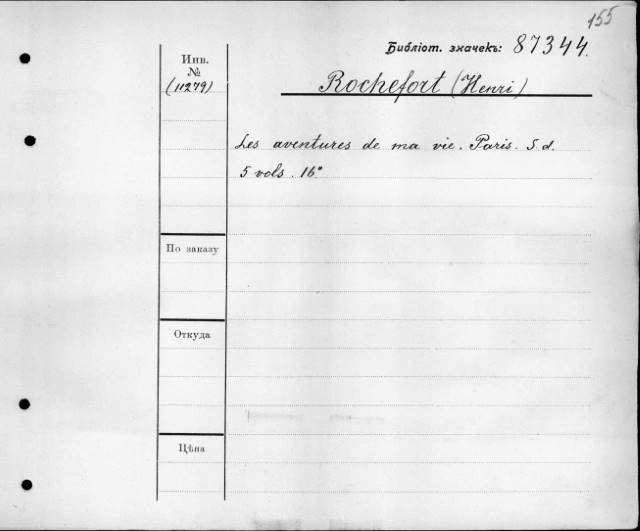 155
Библіот. значекъ: 87344.
Инв.
№
(11279)
Rochefort (Henri)
Les aventures de ma vie. Paris. S. d.
5 vols. 16°
По заказу
Откуда
Цѣна